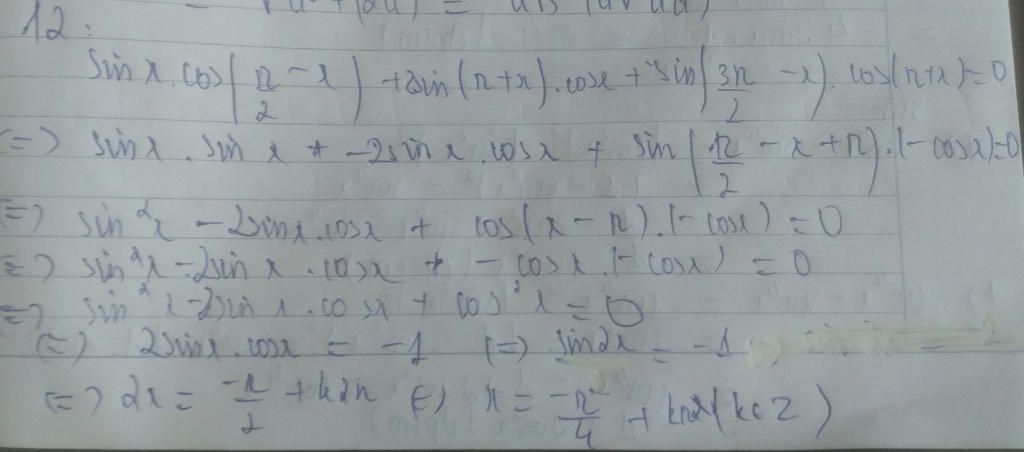 12:
sin x . cos(π/2 - x) + 2sin(π+x).cosx + sin(3π/2 - x). cos(π+x)=0
(=) sinx . sin x + -2sinx .cosx + sin(π/2 - x + π).(-cosx)=0
(=) sin²x - 2sinx.cosx + cos(x - π).(-cosx) = 0
(=) sin²x - 2sin x . cosx + - cosx.(-cosx) = 0
(=) sin²x - 2sin x . cosx + cos²x = 0
(=) 2sinx.cosx = -1 (=) sin2x = -1
(=) 2x = -π/2 + k2π (=) x = -π/4 + kπ (k∈Z)